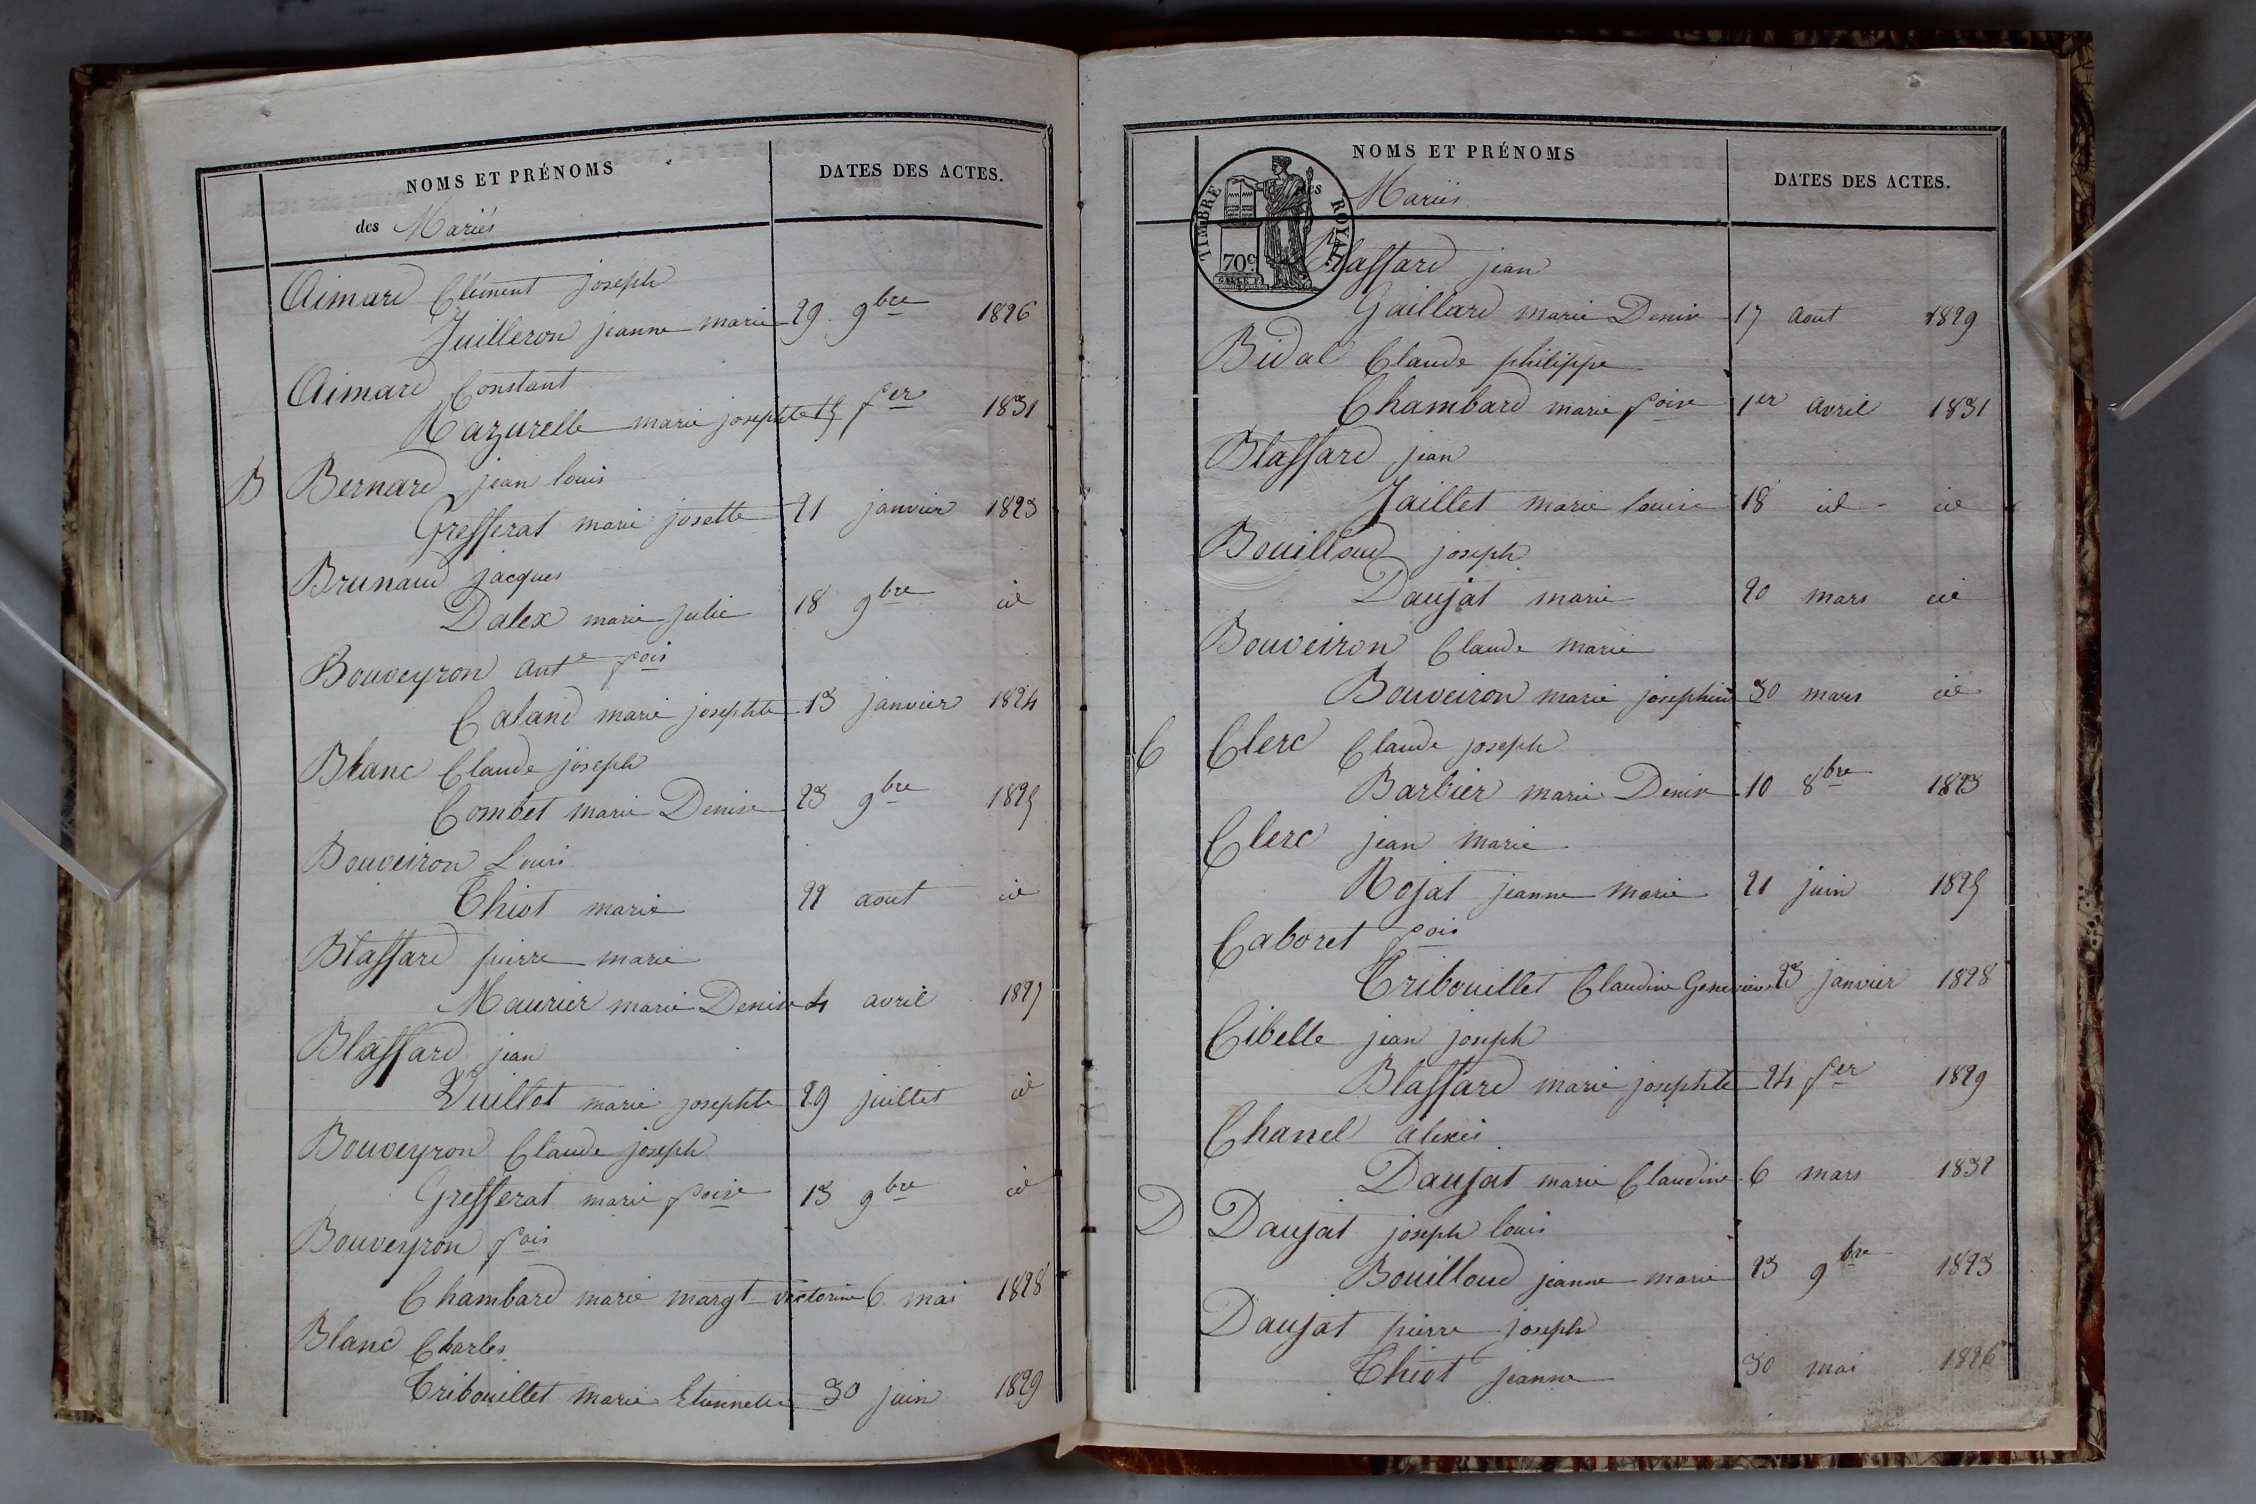 NOMS ET PRÉNOMS
DATES DES ACTES.
des Mariés
Aimard Clément joseph
Juilleron jeanne marie 29 9bre 1826
Aimard Constant
Mazurelle marie josephte 15 fer 1831
B Bernard jean louis
Grefferat marie josette 21 janvier 1823
Brunaud jacques
Dalex marie julie 18 9bre id
Bouveyron Ante fois
Caland marie josephte 13 janvier 1824
Blanc Claude joseph
Combet marie Denise 23 9bre 1825
Bouveiron Louis
Thiot marie 22 aout id
Blaffard pierre marie
Maurier marie Denise 4 avril 1827
Blaffard jean
Vuillot marie josephte 29 juillet id
Bouveyron Claude joseph
Grefferat marie foise 13 9bre id
Bouveyron fois
Chambard marie margt victorine 6 mai 1828
Blanc Charles
Tribouillet marie Etiennette 30 juin 1829
NOMS ET PRÉNOMS
DATES DES ACTES.
des Mariés
TIMBRE ROYAL
70c
Blaffard jean
Gaillard marie Denise 17 aout 1829
Bidal Claude philippe
Chambard marie foise 1er avril 1831
Blaffard jean
Jaillet marie louise 18 id id
Bouilloud joseph
Daujat marie 20 mars id
Bouveiron Claude marie
Bouveiron marie josephine 30 mars id
C Clerc Claude joseph
Barbier marie Denise 10 8bre 1823
Clerc jean marie
Rojat jeanne marie 21 juin 1825
Caboret fois
Tribouillet Claudine Genevieve 23 janvier 1828
Cibelle jean joseph
Blaffard marie josephte 24 fer 1829
Chanel alexis
Daujat marie Claudine 6 mars 1832
D Daujat joseph louis
Bouilloud jeanne marie 23 9bre 1823
Daujat pierre joseph
Thiot jeanne 30 mai 1826